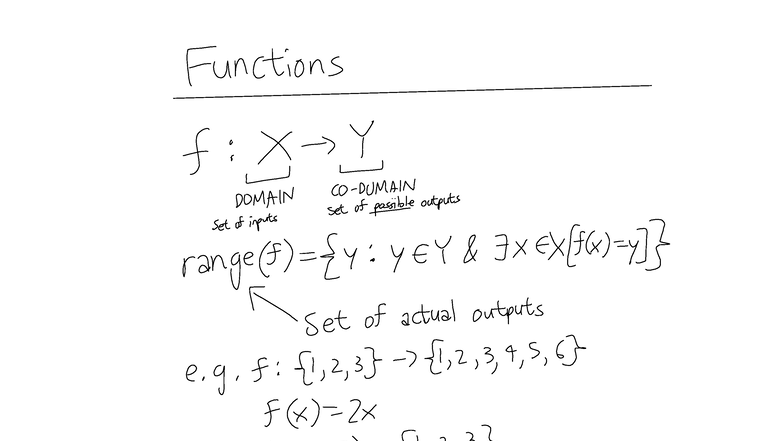 Functions
f : X → Y
DOMAIN CO-DUMAIN
Set of inputs set of possible outputs
range(f) = {y : y ∈ Y & ∃x ∈ X[f(x)=y]}
Set of actual outputs
e.g. f: {1,2,3} → {1,2,3,4,5,6}
f(x)=2x
{1,2,3}